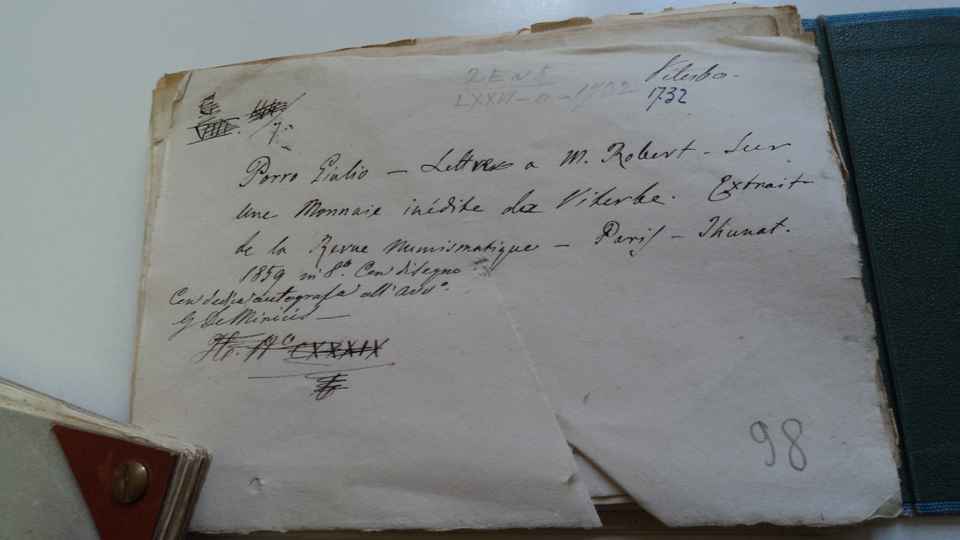 ZENI
LXXII-n-1732
Viterbo.
1732
7.
Porro Giulio — Lettres a M. Robert - Sur
une Monnaie inédite de Viterbe. Extrait
de la Revue Numismatique — Paris - Thunat.
1859 in 8°. Con disegno
Con dedica autografa all'Avv°.
G De Minicis —
CXXXIX
98